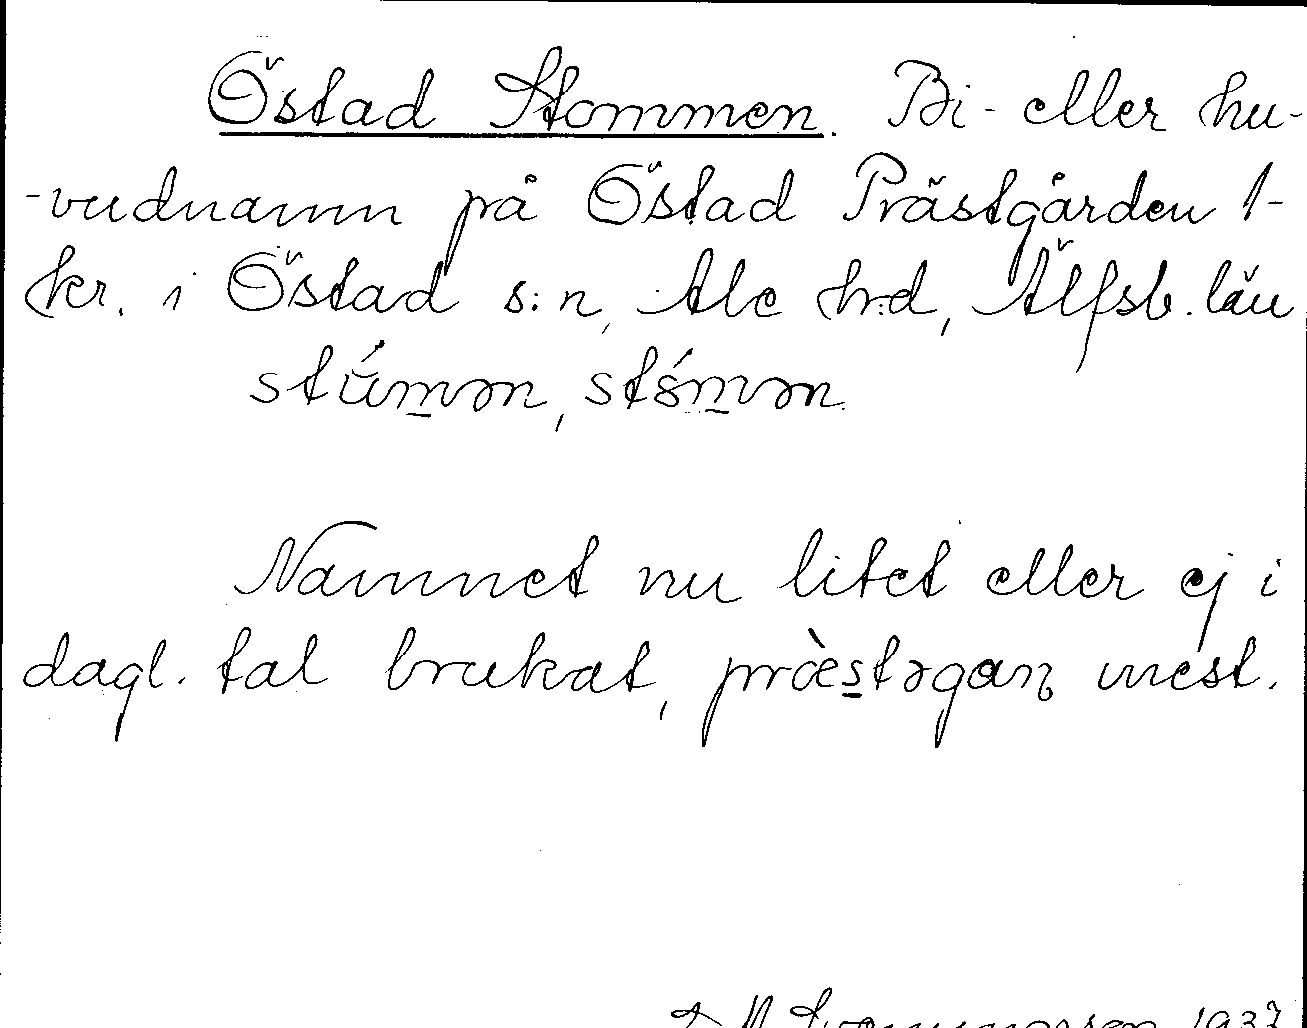 Östad Stommen. Bi- eller hu-
-vudnamn på Östad Prästgården 1-
hr. i Östad s:n, Ale h:d, Älfsb. län
stúm̲ən, stśm̲ən.
Namnet nu litet eller ej i
dagl. tal brukat, præ̀s̲təgaɳ mest.
1937